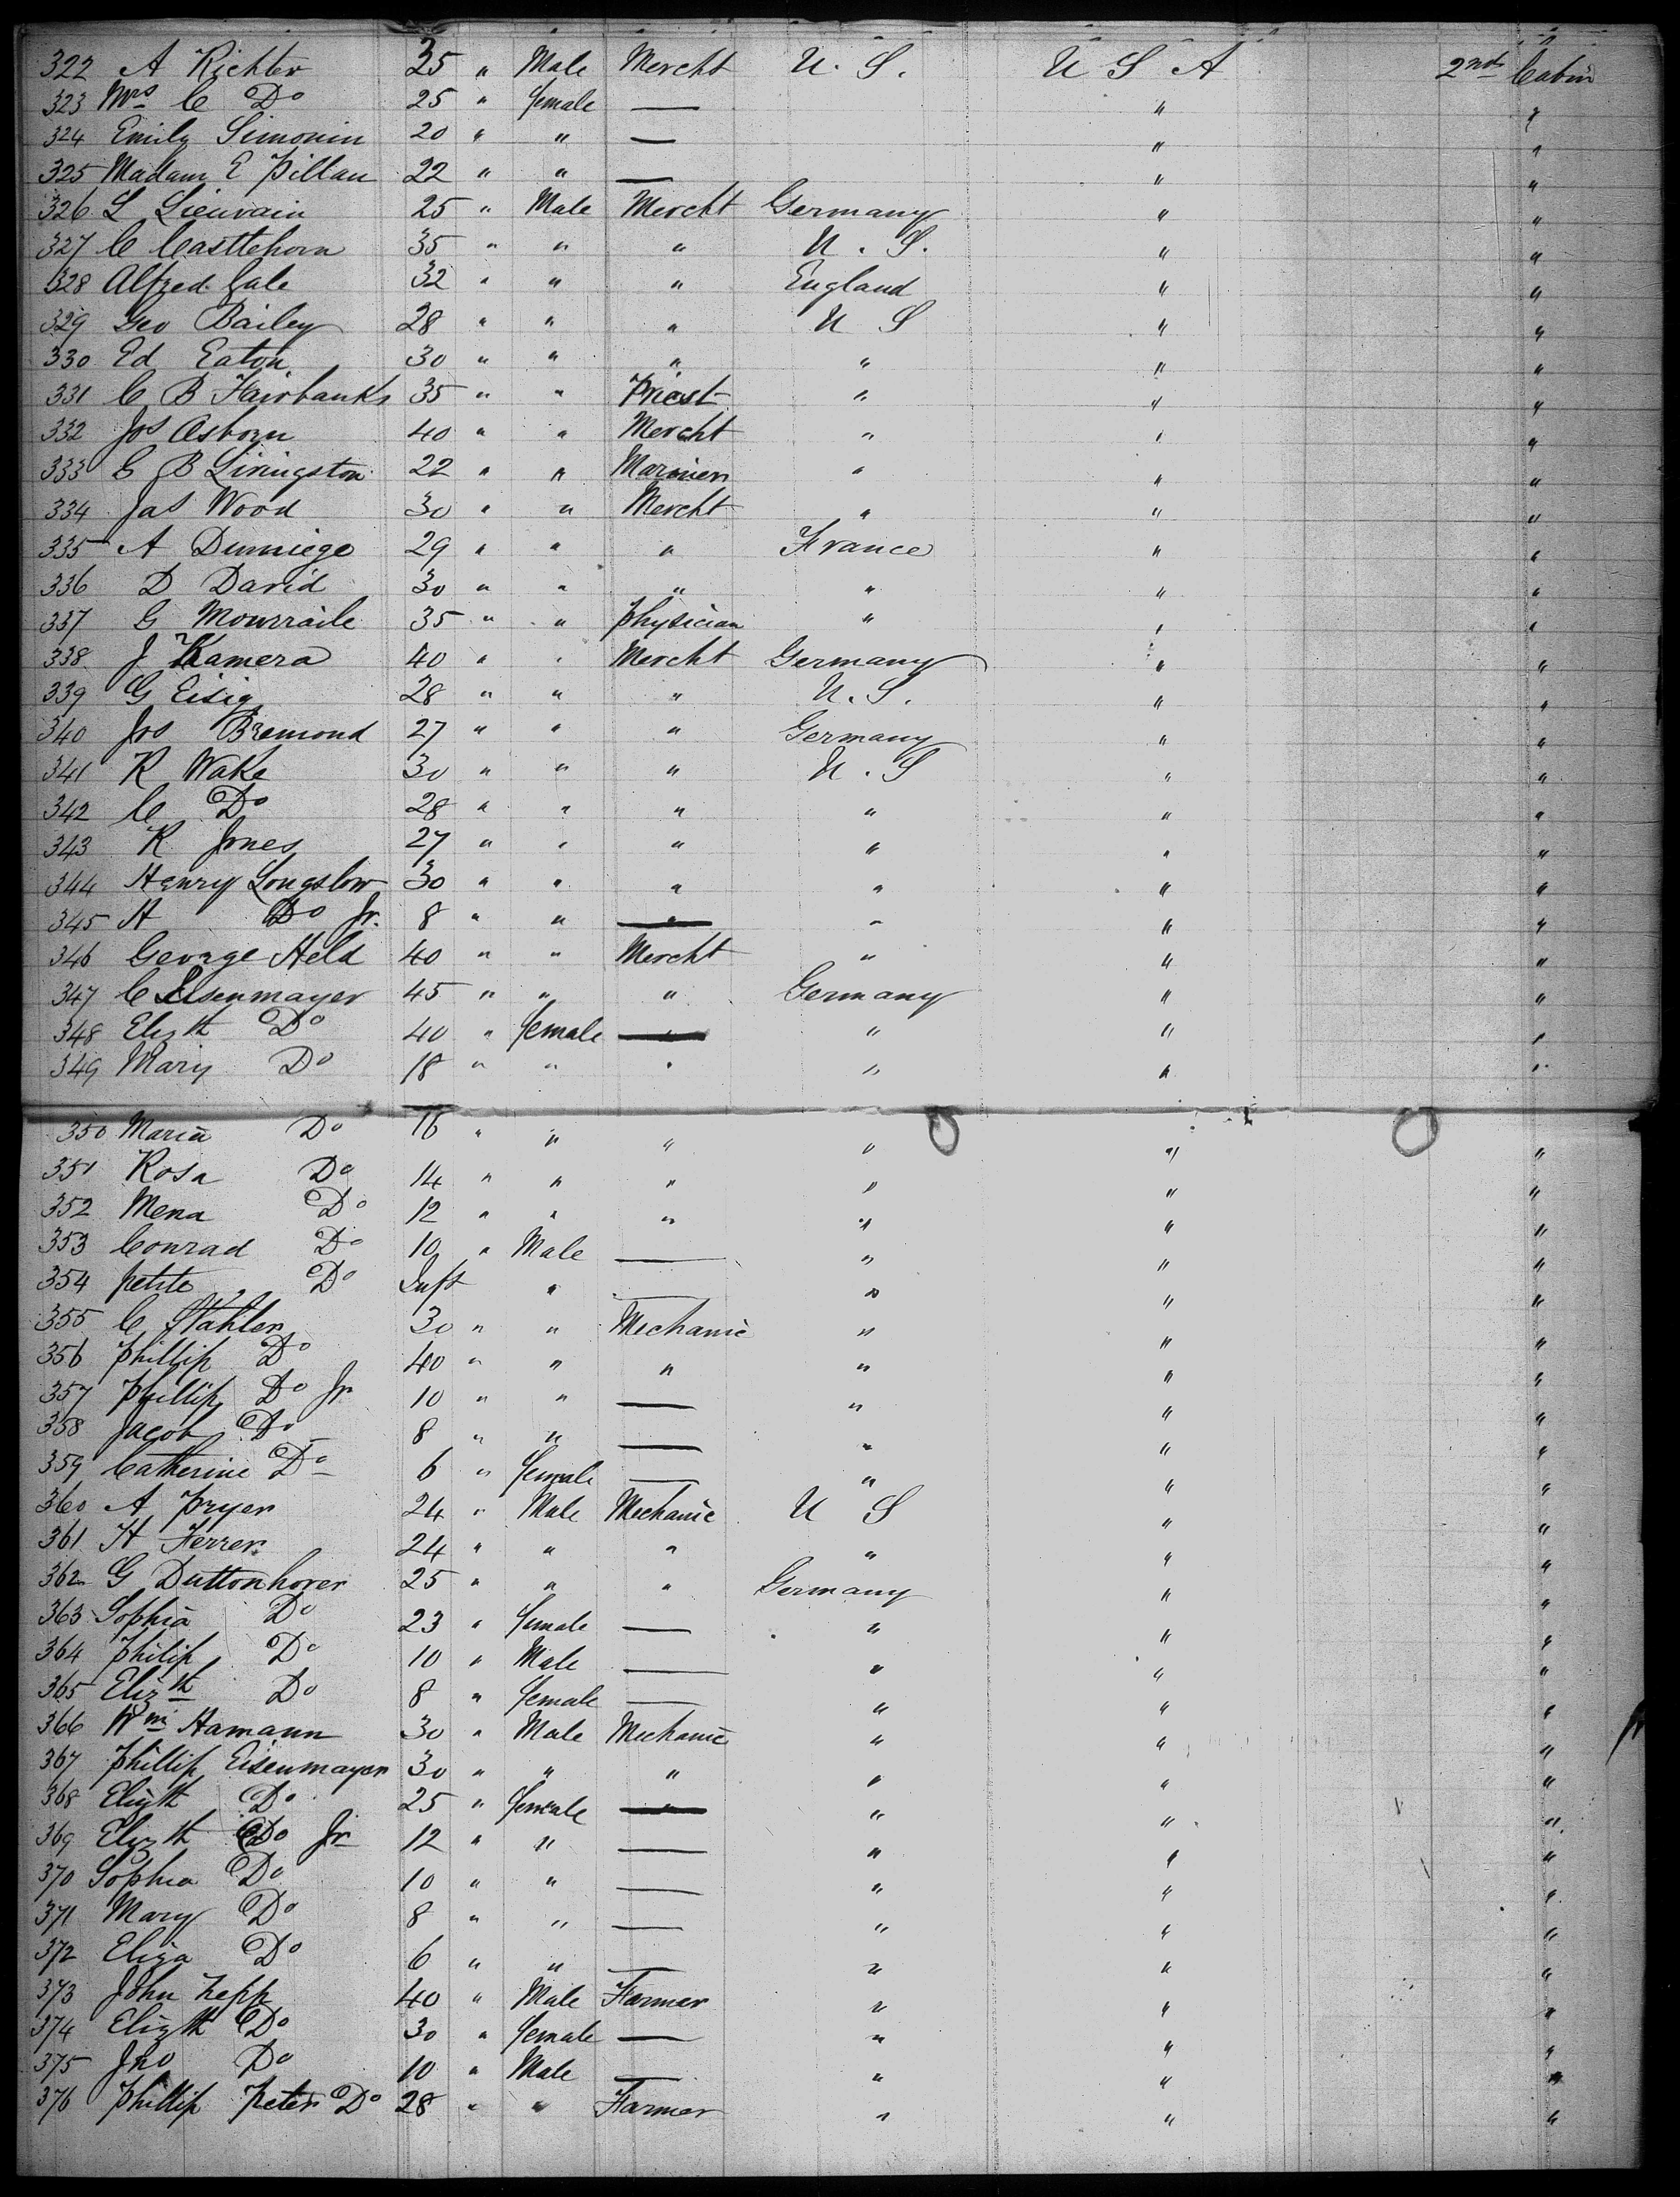 322 A Richter 35 " Male Mercht U. S. U S A 2nd Cabin
323 Mrs C Do 25 " female — " "
324 Emily Simonin 20 " " — " "
325 Madam E Pillau 22 " " — " "
326 L Lieuvain 25 " Male Mercht Germany " "
327 C Casttehorn 35 " " " U. S. " "
328 Alfred Gale 32 " " " England " "
329 Geo Bailey 28 " " " U S " "
330 Ed Eaton 30 " " " " " "
331 C B Fairbanks 35 " " Priest " " "
332 Jos Osborn 40 " " Mercht " " "
333 E B Livingston 22 " " Mariner " " "
334 Jas Wood 30 " " Mercht " " "
335 A Dumiege 29 " " " France " "
336 D David 30 " " " " " "
337 G Mourraile 35 " " Physician " " "
338 J Kamera 40 " " Mercht Germany " "
339 G Eisig 28 " " " U. S. " "
340 Jos Bremond 27 " " " Germany " "
341 R Wake 30 " " " U. S " "
342 C Do 28 " " " " " "
343 R Jones 27 " " " " " "
344 Henry Longslow 30 " " " " " "
345 H Do Jr. 8 " " — " " "
346 George Held 40 " " Mercht " " "
347 C Eisenmayer 45 " " " Germany " "
348 Elizth Do 40 " female — " " "
349 Mary Do 18 " " " " " "
350 Maria Do 16 " " " " " "
351 Rosa Do 14 " " " " " "
352 Mena Do 12 " " " " " "
353 Conrad Do 10 " Male — " " "
354 petite Do Inft " — " " "
355 C Stahler 30 " " Mechanic " " "
356 Phillip Do 40 " " " " " "
357 Phillip Do Jr 10 " " — " " "
358 Jacob Do 8 " " — " " "
359 Catherine Do 6 " female — " " "
360 A Pryer 24 " Male Mechanic U S " "
361 H Ferrer 24 " " " " " "
362 G Duttonhover 25 " " " Germany " "
363 Sophia Do 23 " female — " " "
364 Philip Do 10 " Male — " " "
365 Elizth Do 8 " female — " " "
366 Wm Hamann 30 " Male Mechanic " " "
367 Phillip Eisenmayer 30 " " " " " "
368 Elizth Do 25 " female — " " "
369 Elizth Do Jr 12 " " — " " "
370 Sophia Do 10 " " — " " "
371 Mary Do 8 " " — " " "
372 Eliza Do 6 " " — " " "
373 John Zepp 40 " Male Farmer " " "
374 Elizth Do 30 " female — " " "
375 Jno Do 10 " Male — " " "
376 Phillip Peter Do 28 " " Farmer " " "